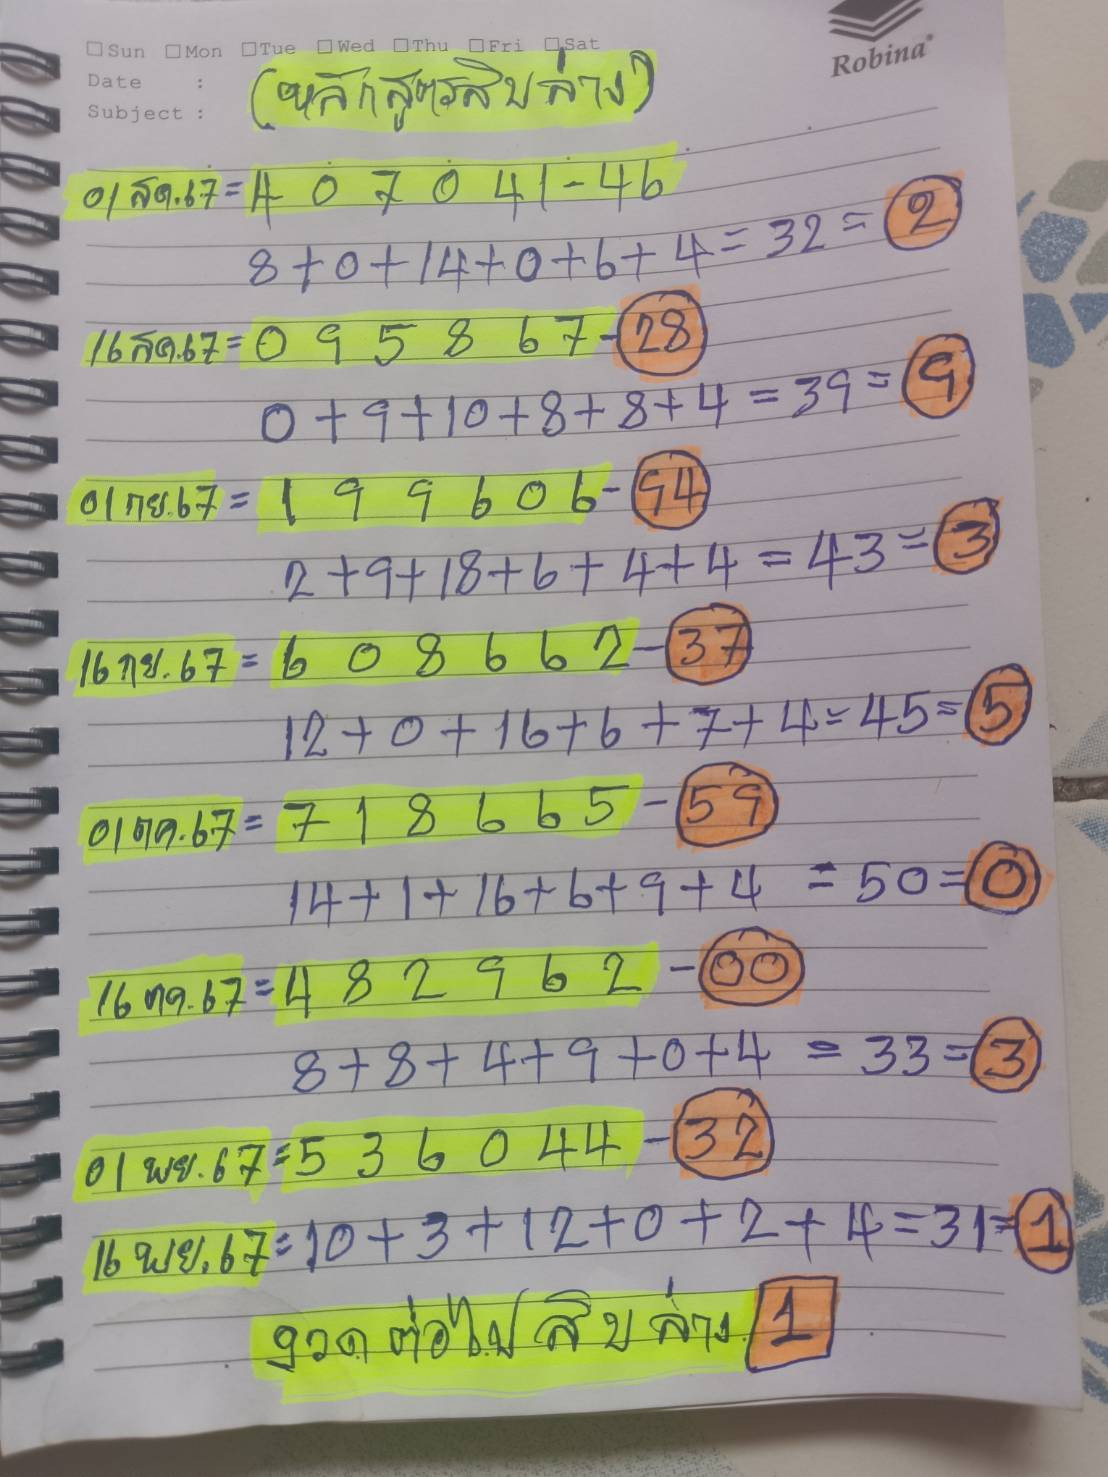 Robina®
□Sun □Mon □Tue □Wed □Thu □Fri □Sat
Date :
Subject :
(หลักสูตรสิบล่าง)
01 สค.67 = 4 0 7 0 4 1 - 46
8+0+14+0+6+4 = 32 = 2
16 สค.67 = 0 9 5 8 6 7 - 28
0+9+10+8+8+4 = 39 = 9
01 กย.67 = 1 9 9 6 0 6 - 94
2+9+18+6+4+4 = 43 = 3
16 กย.67 = 6 0 8 6 6 2 - 37
12+0+16+6+7+4 = 45 = 5
01 ตค.67 = 7 1 8 6 6 5 - 59
14+1+16+6+9+4 = 50 = 0
16 ตค.67 = 4 8 2 9 6 2 - 00
8+8+4+9+0+4 = 33 = 3
01 พย.67 = 5 3 6 0 4 4 - 32
16 พย.67 = 10+3+12+0+2+4 = 31 = 1
งวดต่อไปสิบล่าง 1